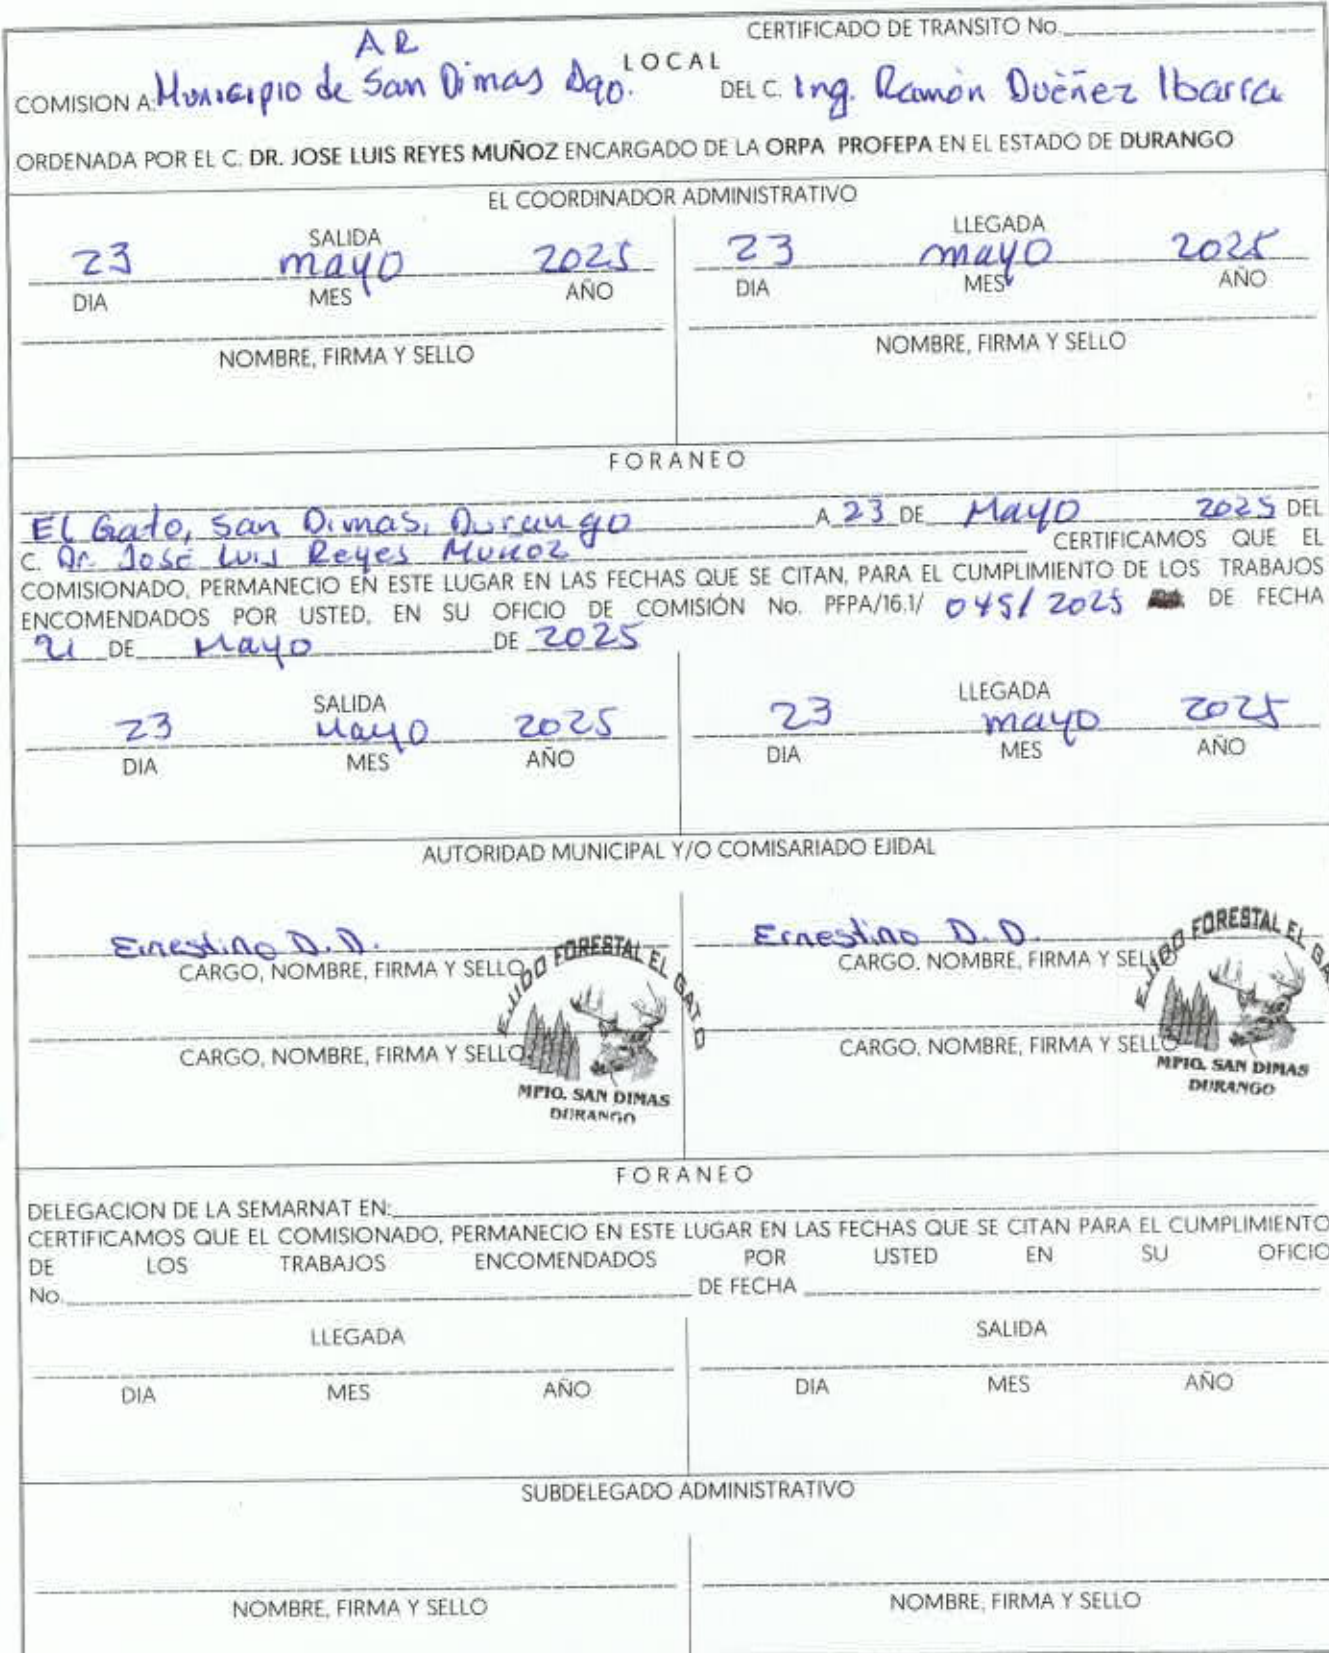 CERTIFICADO DE TRANSITO No.
AR
LOCAL
COMISION A: Municipio de San Dimas Dgo. DEL C. Ing. Ramón Duéñez Ibarra
ORDENADA POR EL C. DR. JOSE LUIS REYES MUÑOZ ENCARGADO DE LA ORPA PROFEPA EN EL ESTADO DE DURANGO
EL COORDINADOR ADMINISTRATIVO
SALIDA LLEGADA
23 mayo 2025 23 mayo 2025
DIA MES AÑO DIA MES AÑO
NOMBRE, FIRMA Y SELLO NOMBRE, FIRMA Y SELLO
FORANEO
El Gato, San Dimas, Durango A 23 DE Mayo 2025 DEL
C. Dr. José Luis Reyes Muñoz CERTIFICAMOS QUE EL
COMISIONADO, PERMANECIO EN ESTE LUGAR EN LAS FECHAS QUE SE CITAN, PARA EL CUMPLIMIENTO DE LOS TRABAJOS
ENCOMENDADOS POR USTED, EN SU OFICIO DE COMISIÓN No. PFPA/16.1/ 045/2025 DE FECHA
21 DE Mayo DE 2025
SALIDA LLEGADA
23 Mayo 2025 23 mayo 2025
DIA MES AÑO DIA MES AÑO
AUTORIDAD MUNICIPAL Y/O COMISARIADO EJIDAL
Ernestino D.D. Ernestino D.D.
CARGO, NOMBRE, FIRMA Y SELLO CARGO, NOMBRE, FIRMA Y SELLO
EJIDO FORESTAL EL GATO EJIDO FORESTAL EL GA
CARGO, NOMBRE, FIRMA Y SELLO CARGO, NOMBRE, FIRMA Y SELLO
MPIO. SAN DIMAS MPIO. SAN DIMAS
DURANGO DURANGO
FORANEO
DELEGACION DE LA SEMARNAT EN:
CERTIFICAMOS QUE EL COMISIONADO, PERMANECIO EN ESTE LUGAR EN LAS FECHAS QUE SE CITAN PARA EL CUMPLIMIENTO
DE LOS TRABAJOS ENCOMENDADOS POR USTED EN SU OFICIO
No. DE FECHA
LLEGADA SALIDA
DIA MES AÑO DIA MES AÑO
SUBDELEGADO ADMINISTRATIVO
NOMBRE, FIRMA Y SELLO NOMBRE, FIRMA Y SELLO